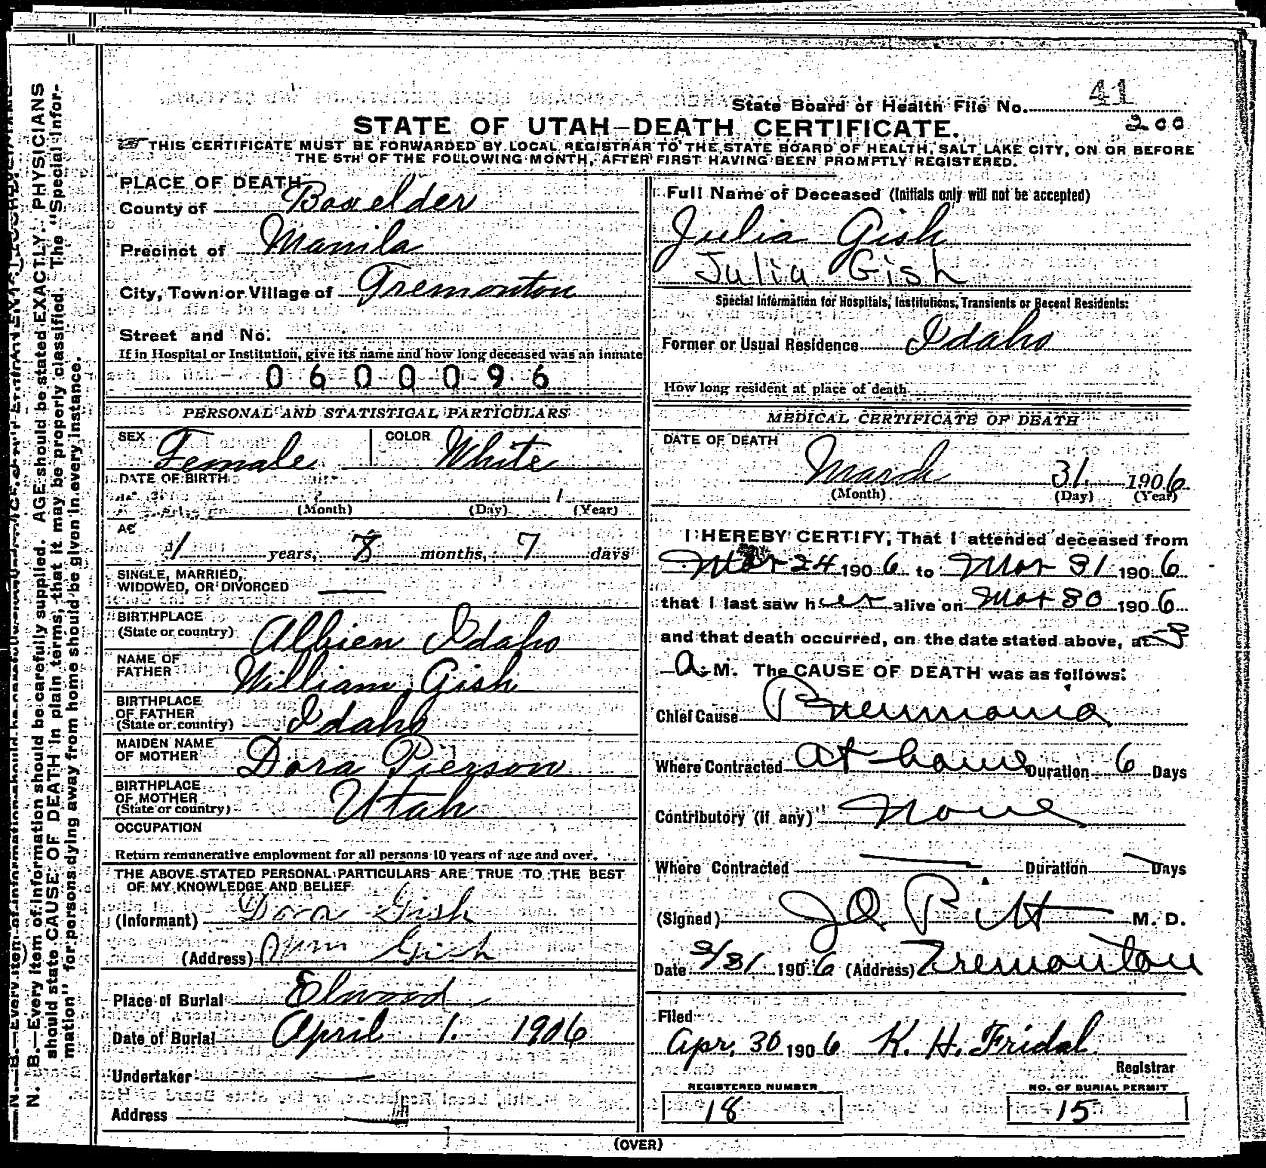 41
State Board of Health File No.
200
STATE OF UTAH-DEATH CERTIFICATE.
THIS CERTIFICATE MUST BE FORWARDED BY LOCAL REGISTRAR TO THE STATE BOARD OF HEALTH, SALT LAKE CITY, ON OR BEFORE
THE 5TH OF THE FOLLOWING MONTH, AFTER FIRST HAVING BEEN PROMPTLY REGISTERED.
PLACE OF DEATH
County of Boxelder
Precinct of Manila
City, Town or Village of Tremonton
Street and No.
If in Hospital or Institution, give its name and how long deceased was an inmate
0600096
PERSONAL AND STATISTICAL PARTICULARS
SEX Female COLOR White
DATE OF BIRTH
(Month) (Day) (Year)
1 years, 8 months, 7 days
SINGLE, MARRIED,
WIDOWED, OR DIVORCED
BIRTHPLACE
(State or country) Albien Idaho
NAME OF
FATHER William Gish
BIRTHPLACE
OF FATHER
(State or country) Idaho
MAIDEN NAME
OF MOTHER Dora Pierson
BIRTHPLACE
OF MOTHER
(State or country) Utah
OCCUPATION
Return remunerative employment for all persons 10 years of age and over.
THE ABOVE STATED PERSONAL PARTICULARS ARE TRUE TO THE BEST
OF MY KNOWLEDGE AND BELIEF
(Informant) Dora Gish
(Address) Gish
Place of Burial Elwood
Date of Burial April 1. 1906
Undertaker
Address
Full Name of Deceased (Initials only will not be accepted)
Julia Gish
Julia Gish
Special Information for Hospitals, Institutions, Transients or Recent Residents:
Former or Usual Residence Idaho
How long resident at place of death
MEDICAL CERTIFICATE OF DEATH
DATE OF DEATH
March 31 1906
(Month) (Day) (Year)
I HEREBY CERTIFY, That I attended deceased from
Mar 24 1906 to Mar 31 1906
that I last saw her alive on Mar 30 1906
and that death occurred, on the date stated above, at 3
A. M. The CAUSE OF DEATH was as follows:
Chief Cause Pneumonia
Where Contracted At home Duration 6 Days
Contributory (if any) None
Where Contracted Duration Days
(Signed) M. D.
Date 3/31 1906 (Address) Tremonton
Filed
Apr. 30 1906 K. H. Fridal
Registrar
REGISTERED NUMBER
18
NO. OF BURIAL PERMIT
15
(OVER)
N. B.—Every item of information should be carefully supplied. AGE should be stated EXACTLY. PHYSICIANS
should state CAUSE OF DEATH in plain terms, that it may be properly classified. The "Special Infor-
mation" for persons dying away from home should be given in every instance.